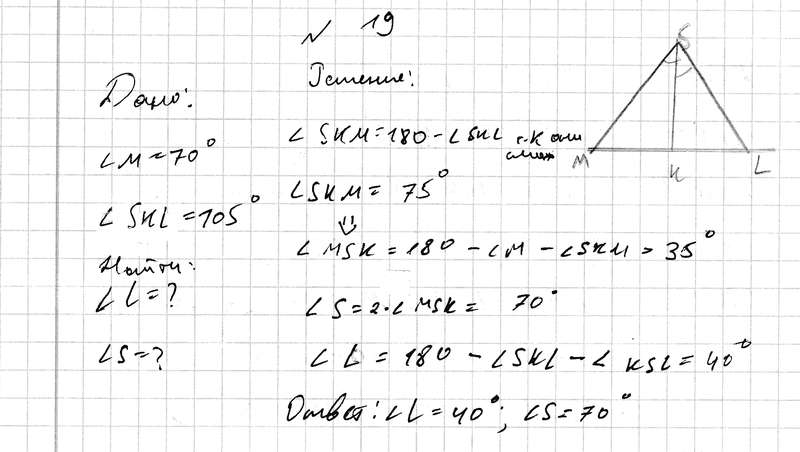 № 19
Дано:
∠M=70°
∠SKL=105°
Найти:
∠L=?
∠S=?
Решение:
∠SKM=180-∠SKL т.к они смеж
∠SKM= 75°
⇓
∠MSK=180-∠M-∠SKM=35°
∠S=2·∠MSK= 70°
∠L=180-∠SKL-∠KSL=40°
Ответ: ∠L=40°; ∠S=70°
S
M
K
L